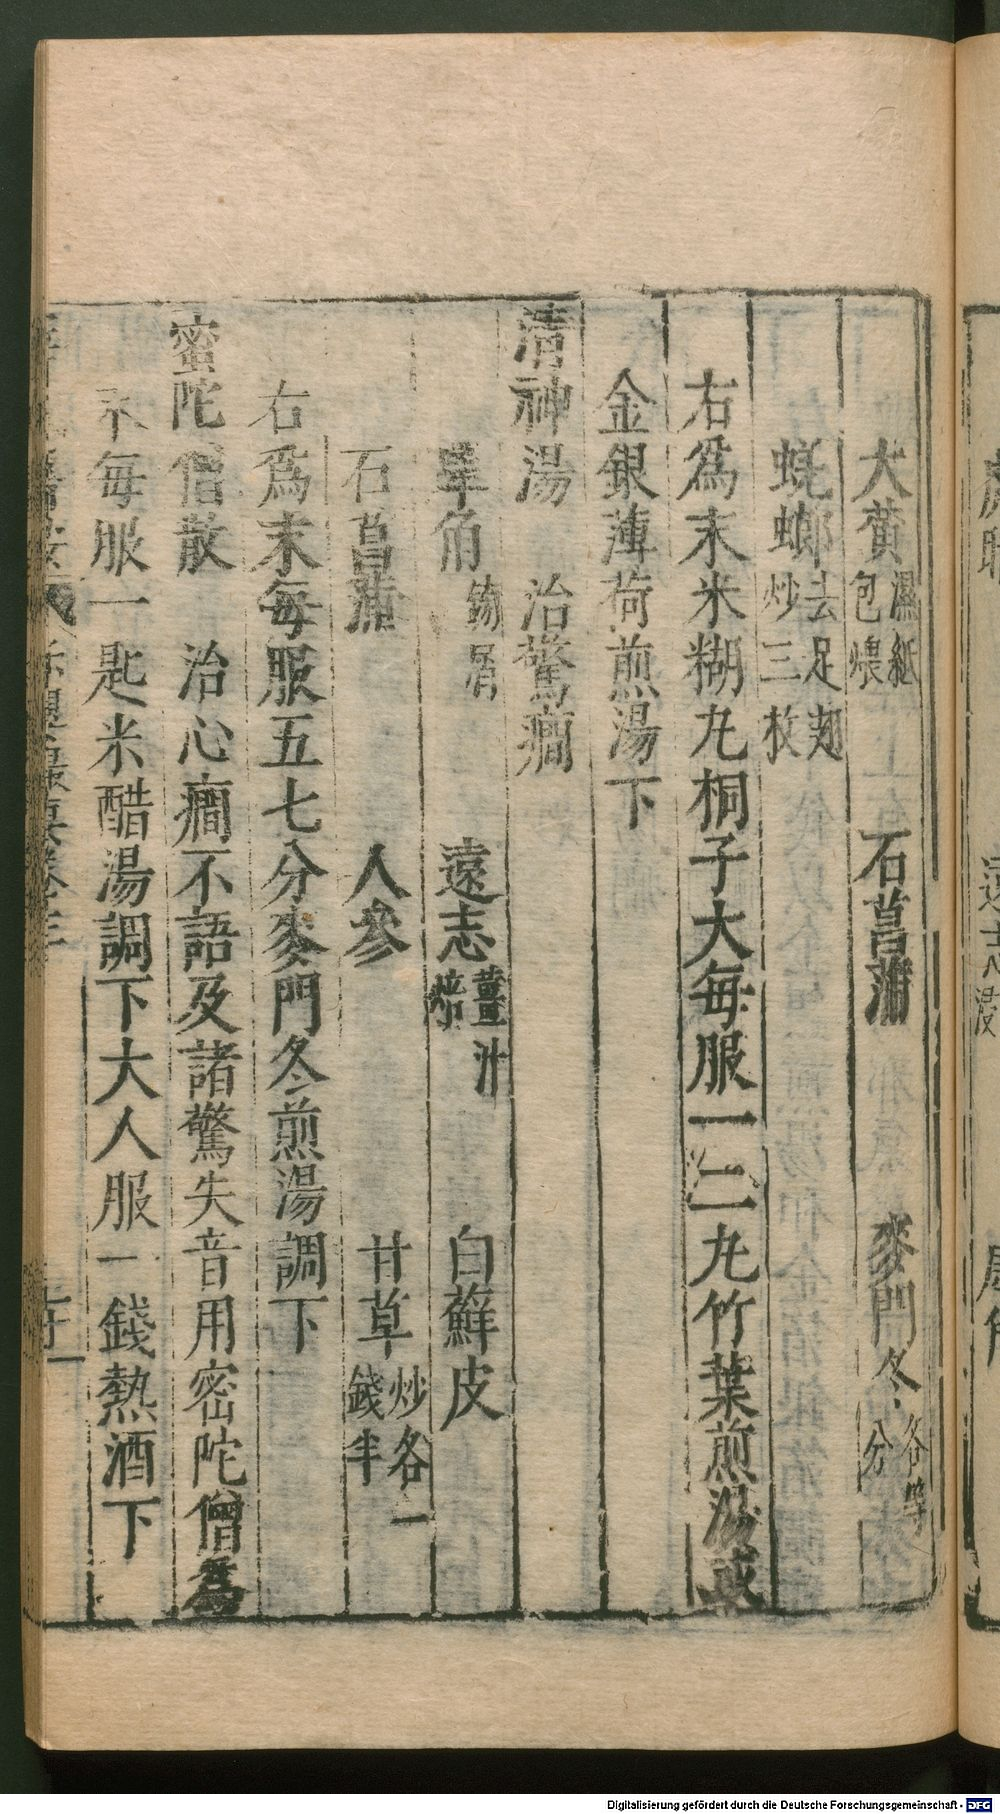 大黄濕紙包煨 石菖蒲 麥門冬各等分
蜣螂去足翅炒三枚
右爲末米糊丸桐子大每服一二丸竹葉煎湯或
金銀薄荷煎湯下
清神湯 治驚癇
犀角鎊屑 遠志薑汁焙 白蘚皮
石菖蒲 人參 甘草炒各一錢半
右爲末每服五七分麥門冬煎湯調下
蜜陀僧散 治心癇不語及諸驚失音用密陀僧爲
末每服一匙米醋湯調下大人服一錢熱酒下
Digitalisierung gefördert durch die Deutsche Forschungsgemeinschaft - DFG